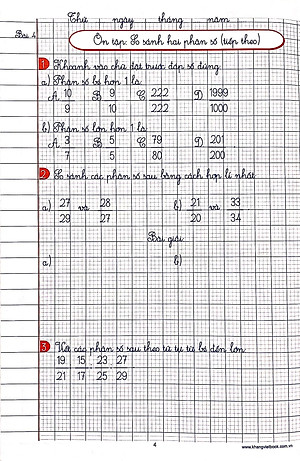 Thứ ngày tháng năm
Bài 4
Ôn tập: So sánh hai phân số (tiếp theo)
1 Khoanh vào chữ đặt trước đáp số đúng
a) Phân số bé hơn 1 là:
A. 10/9 B. 9/10 C. 222/222 D. 1999/1000
b) Phân số lớn hơn 1 là:
A. 3/7 B. 5/5 C. 79/80 D. 201/200
2 So sánh các phân số sau bằng cách hợp lí nhất
a) 27/29 và 28/27 b) 21/20 và 33/34
Bài giải
a) b)
3 Viết các phân số sau theo thứ tự từ bé đến lớn
19/21 ; 15/17 ; 23/25 ; 27/29
4
www.khangvietbook.com.vn